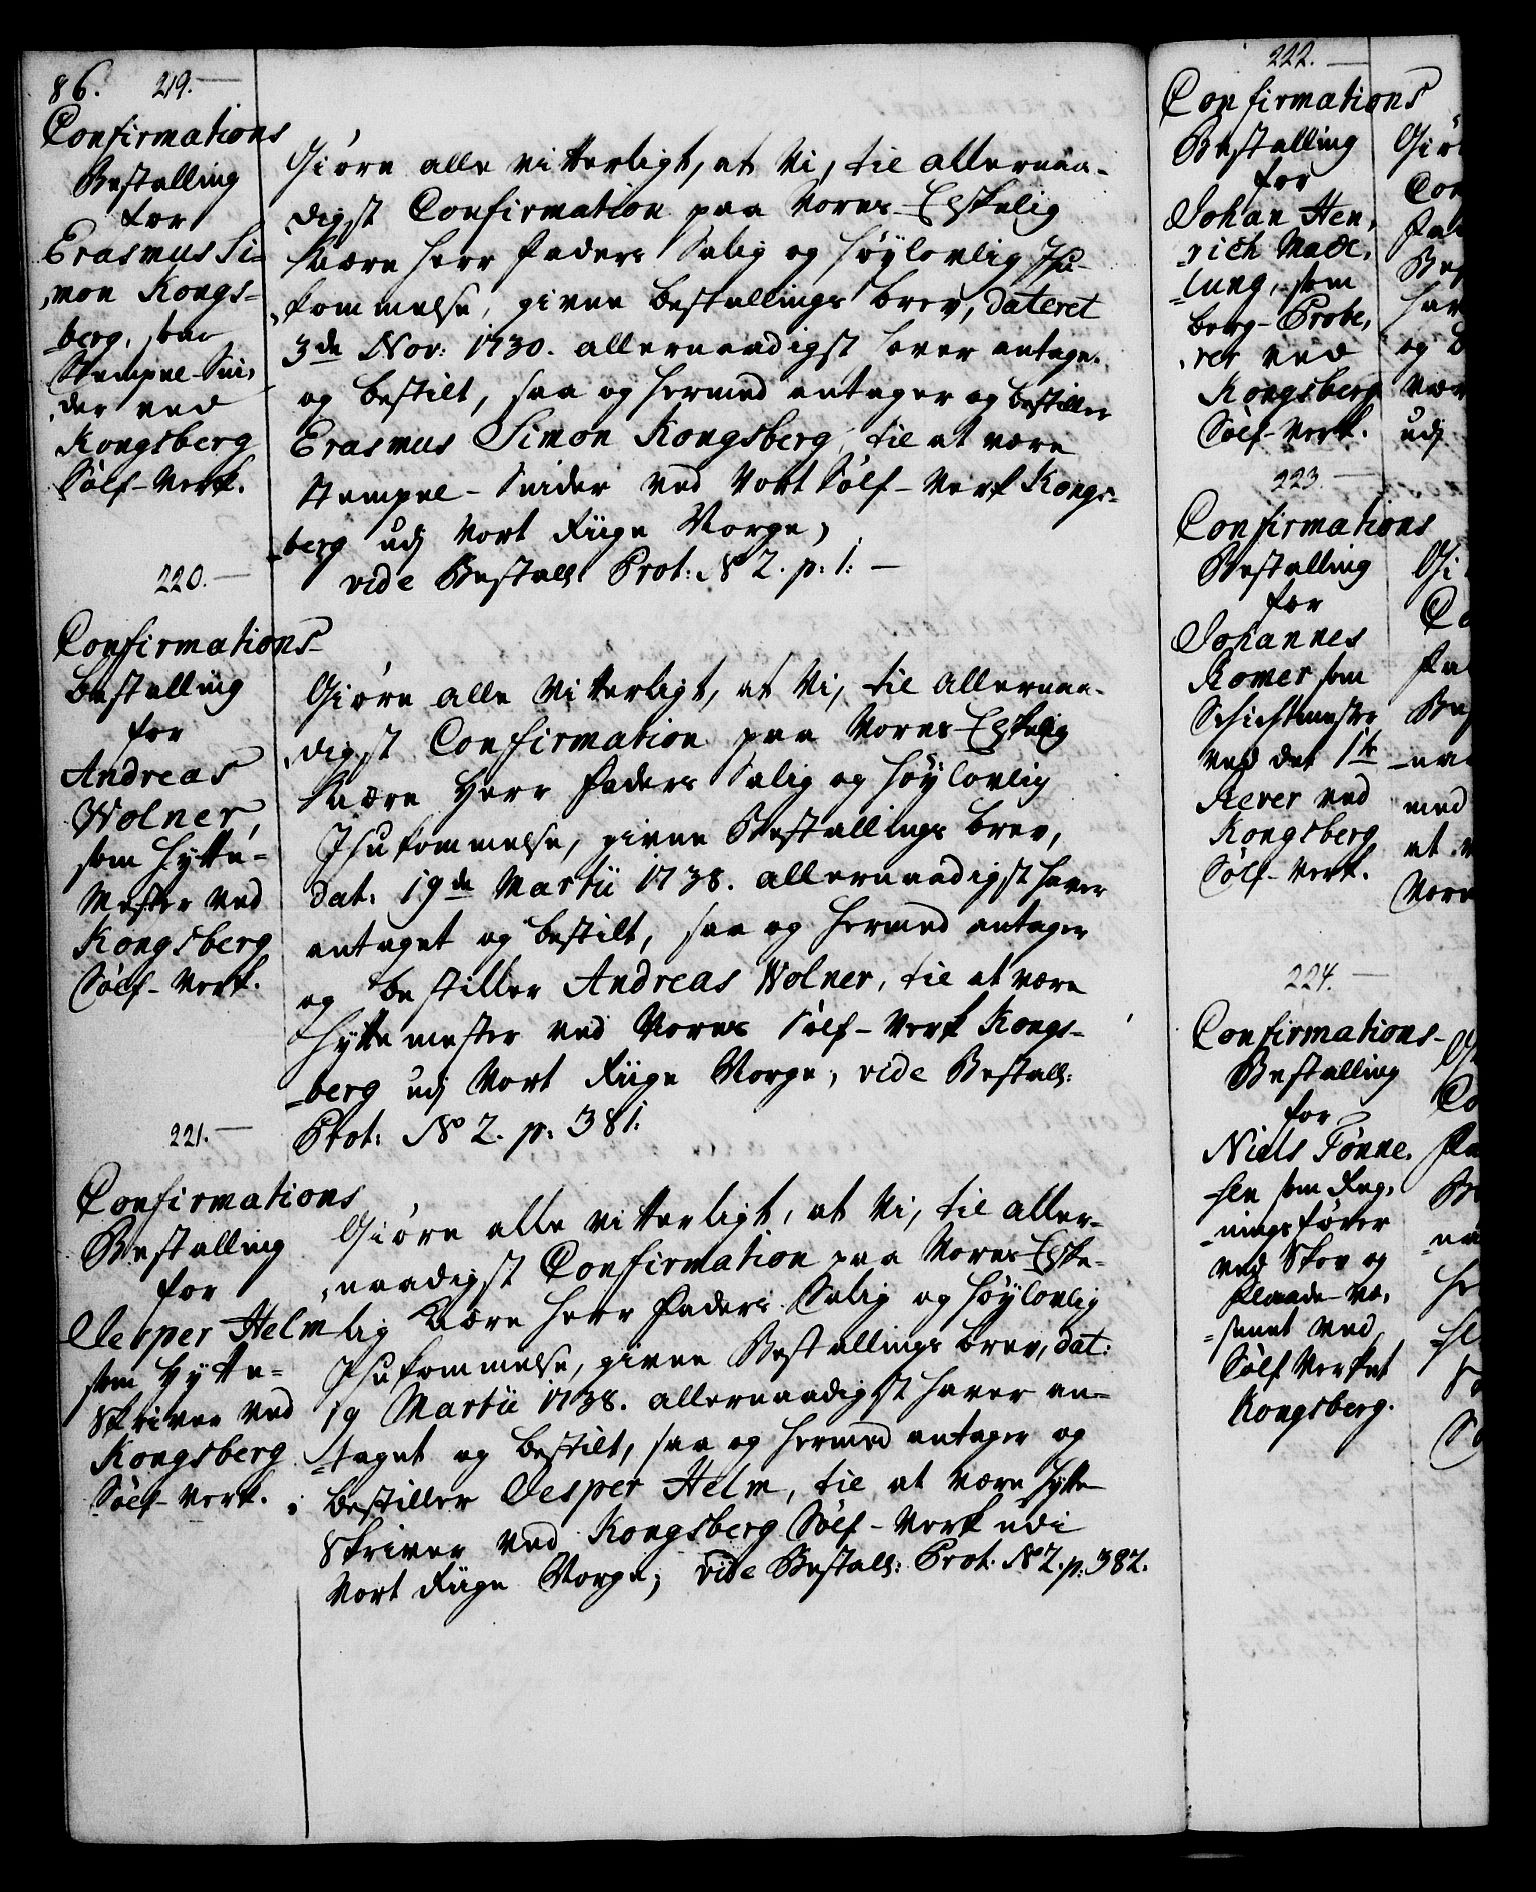 86. 219.
Confirmations
Bestalling
for
Erasmus Si-
mon Kongs-
berg, som
Stempel-Snider
ved
Kongsberg
Sølf-Verk.
Giøre alle vitterligt, at Vi, til allernaa-
digst Confirmation paa Vores Elskelig
kiære Herr Faders Salig og høylovlig Ihu-
kommelse, givne bestallings brev, dateret
3de Nov: 1730. allernaadigst haver antaget
og bestilt, saa og hermed antager og bestiller
Erasmus Simon Kongsberg, til at være
Stempel-Snider ved Vort Sølf-Verk Kongs-
berg udj Vort Riige Norge,
vide Bestall: Prot: No 2. p: 1:
220.
Confirmations
bestalling
for
Andreas
Wolner,
som Hytte-
Mester ved
Kongsberg
Sølf-Verk.
Giøre alle Vitterligt, at Vi, til allernaa-
digst Confirmation paa Vores Elskelig
kiære Herr Faders Salig og høylovlig
Ihukommelse, givne Bestallings brev,
dat: 19de Martii 1738. allernaadigst haver
antaget og bestilt, saa og hermed antager
og bestiller Andreas Wolner, til at være
Hyttemester ved Vores Sølf-Verk Kongs-
berg udj Vort Riige Norge, vide Bestall:
Prot: No 2. p: 381.
221.
Confirmations
Bestalling
for
Jesper Helm
som Hytte-
skriver ved
Kongsberg
Sølf-Verk.
Giøre alle vitterligt, at Vi, til aller-
naadigst Confirmation paa Vores Elske-
lig kiære Herr Faders Salig og høylovlig
Ihukommelse, givne Bestallings brev, dat:
19 Martii 1738. allernaadigst haver an-
taget og bestilt, saa og hermed antager og
bestiller Jesper Helm, til at være Hytte
skriver ved Kongsberg Sølf-Verk udi
Vort Riige Norge; vide Bestall: Prot: No 2. p: 382.
222.
Confirmations
Bestalling
for
Johan Hen-
rich Made-
lung, som
berg-Probe-
rer ved
Kongsberg
Sølf-Verk.
223.
Confirmations
Bestalling
for
Johannes
Romer som
Schichtmester
ved det 1te
Rever ved
Kongsberg
Sølf-Verk.
224.
Confirmations-
Bestalling
for
Niels Tønne-
sen som Reg-
ningsfører
ved Skov og
Plaade-Væ-
senet ved
Sølf Verket
Kongsberg.